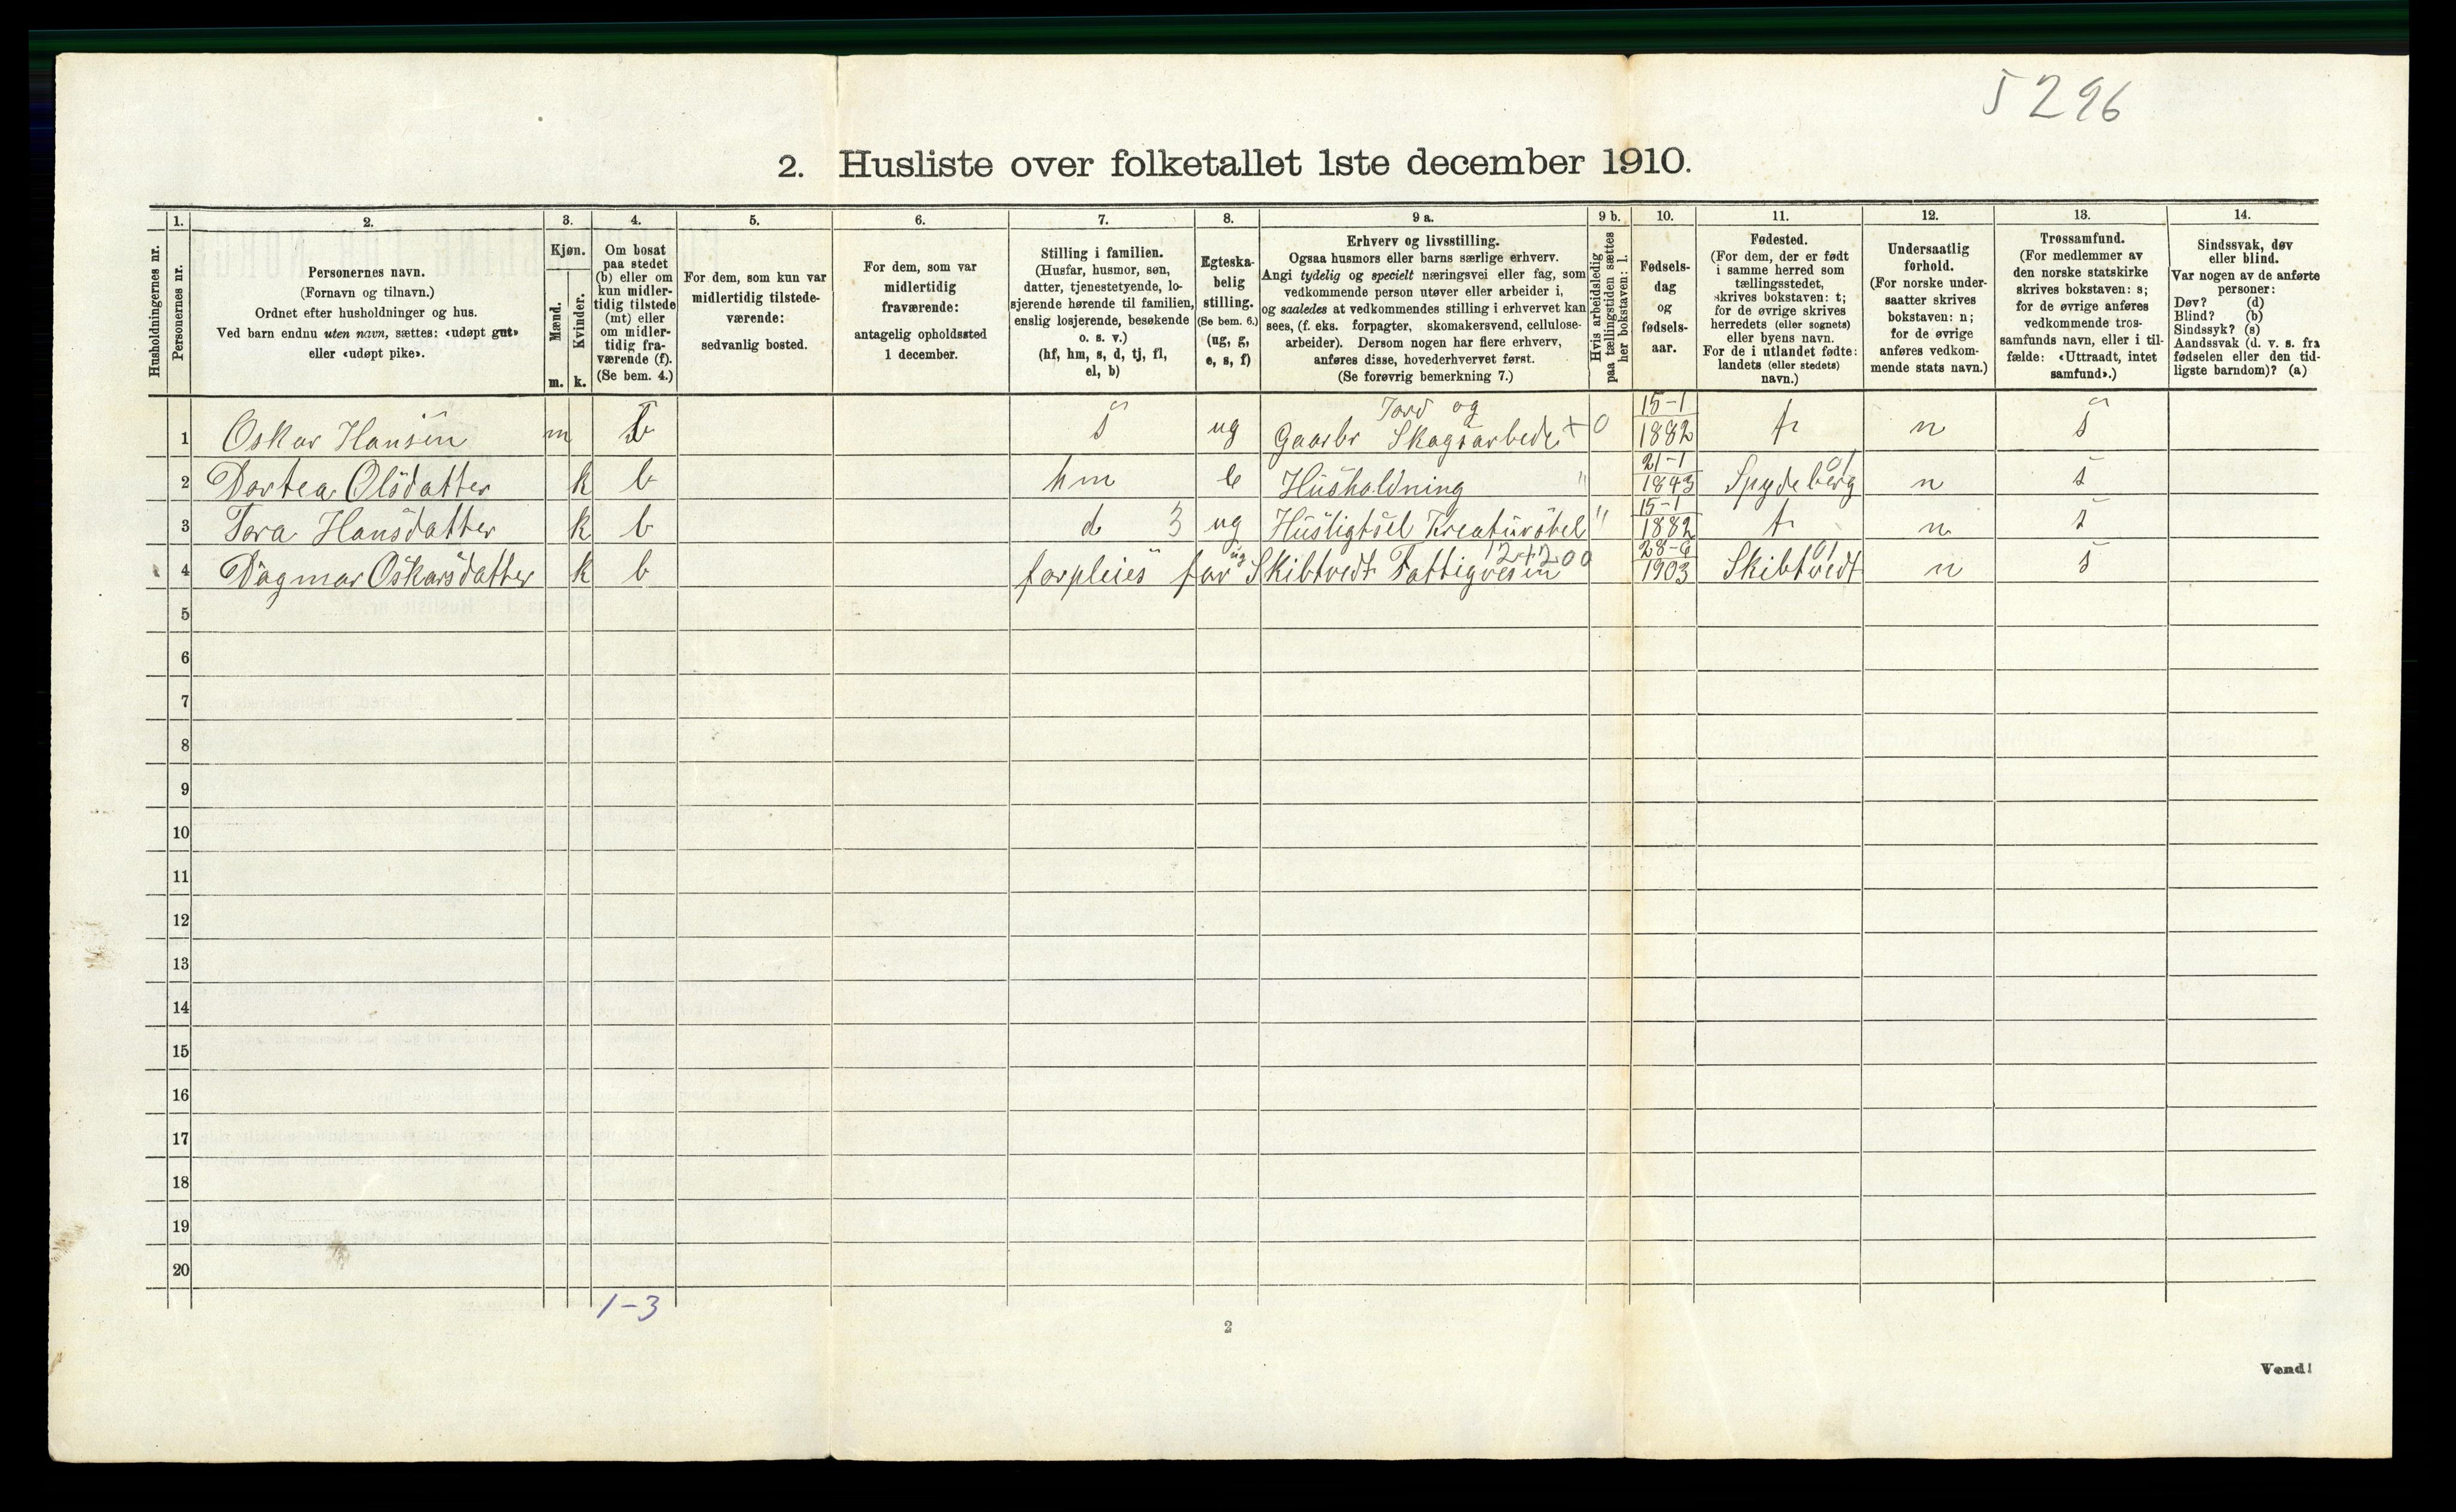 5296
2. Husliste over folketallet 1ste december 1910.
Husholdningernes nr.
1.
Personernes nr.
2.
Personernes navn.
(Fornavn og tilnavn.)
Ordnet efter husholdninger og hus.
Ved barn endnu uten navn, sættes: «udøpt gut»
eller «udøpt pike».
3.
Kjøn.
Mænd.
Kvinder.
m. k.
4.
Om bosat
paa stedet
(b) eller om
kun midler-
tidig tilstede
(mt) eller
om midler-
tidig fra-
værende (f).
(Se bem. 4.)
5.
For dem, som kun var
midlertidig tilstede-
værende:
sedvanlig bosted.
6.
For dem, som var
midlertidig
fraværende:
antagelig opholdssted
1 december.
7.
Stilling i familien.
(Husfar, husmor, søn,
datter, tjenestetyende, lo-
sjerende hørende til familien,
enslig losjerende, besøkende
o. s. v.)
(hf, hm, s, d, tj, fl,
el, b)
8.
Egteska-
belig
stilling.
(Se bem. 6.)
(ug, g,
e, s, f)
9 a.
Erhverv og livsstilling.
Ogsaa husmors eller barns særlige erhverv.
Angi tydelig og specielt næringsvei eller fag, som
vedkommende person utøver eller arbeider i,
og saaledes at vedkommendes stilling i erhvervet kan
sees, (f. eks. forpagter, skomakersvend, cellulose-
arbeider). Dersom nogen har flere erhverv,
anføres disse, hovederhvervet først.
(Se forøvrig bemerkning 7.)
9 b.
Hvis arbeidsledig
paa tællingstiden sættes
her bokstaven: l.
10.
Fødsels-
dag
og
fødsels-
aar.
11.
Fødested.
(For dem, der er født
i samme herred som
tællingsstedet,
skrives bokstaven: t;
for de øvrige skrives
herredets (eller sognets)
eller byens navn.
For de i utlandet fødte:
landets (eller stedets)
navn.)
12.
Undersaatlig
forhold.
(For norske under-
saatter skrives
bokstaven: n;
for de øvrige
anføres vedkom-
mende stats navn.)
13.
Trossamfund.
(For medlemmer av
den norske statskirke
skrives bokstaven: s;
for de øvrige anføres
vedkommende tros-
samfunds navn, eller i til-
fælde: «Uttraadt, intet
samfund».)
14.
Sindssvak, døv
eller blind.
Var nogen av de anførte
personer:
Døv? (d)
Blind? (b)
Sindssyk? (s)
Aandssvak (d. v. s. fra
fødselen eller den tid-
ligste barndom)? (a)
1 Oskar Hansen m b s ug Jord og Gaardbr Skogsarbede + 0 15-1 1882 t n s
2 Dortea Olsdatter k b hm e Husholdning " 21-1 1843 Spydeberg 01 n s
3 Tora Hansdatter k b d 3 ug Husligtsel Kreaturstel " 15-1 1882 t n s
4 Dagmar Oskarsdatter k b forpleies for ug Skibtvedt Fattigvesen 12+200 28-6 1903 Skibtvedt 01 n s
5
6
7
8
9
10
11
12
13
14
15
16
17
18
19
20
1-3
2
Vend!